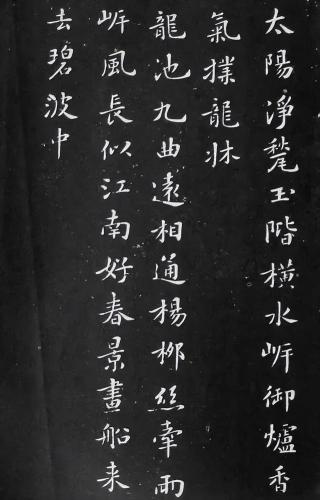 太陽淨甃玉階橫水岍御爐香
氣撲龍牀
龍池九曲遠相通楊桺絲牽兩
岍風長似江南好春景畫船来
去碧波中